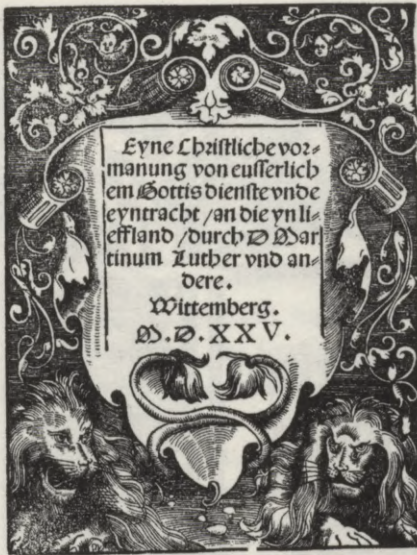 Eyne Christliche vor⸗
manung von eusserlich
em Gottis dienste vnde
eyntracht /an die yn li⸗
effland /durch D Mar
tinum Luther vnd an⸗
dere.
Wittemberg.
M.D.XXV.